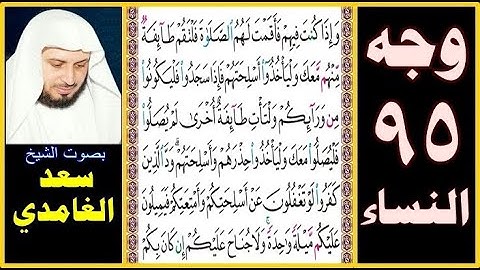 وجه
٩٥
النساء
وَإِذَا كُنتَ فِيهِمْ فَأَقَمْتَ لَهُمُ ٱلصَّلَوٰةَ فَلْتَقُمْ طَآئِفَةٌ
مِّنْهُم مَّعَكَ وَلْيَأْخُذُوٓا۟ أَسْلِحَتَهُمْ فَإِذَا سَجَدُوا۟ فَلْيَكُونُوا۟
مِن وَرَآئِكُمْ وَلْتَأْتِ طَآئِفَةٌ أُخْرَىٰ لَمْ يُصَلُّوا۟
فَلْيُصَلُّوا۟ مَعَكَ وَلْيَأْخُذُوا۟ حِذْرَهُمْ وَأَسْلِحَتَهُمْ ۗ وَدَّ ٱلَّذِينَ
كَفَرُوا۟ لَوْ تَغْفُلُونَ عَنْ أَسْلِحَتِكُمْ وَأَمْتِعَتِكُمْ فَيَمِيلُونَ
عَلَيْكُم مَّيْلَةً وَٰحِدَةً ۚ وَلَا جُنَاحَ عَلَيْكُمْ إِن كَانَ بِكُمْ
بصوت الشيخ
سعد
الغامدي